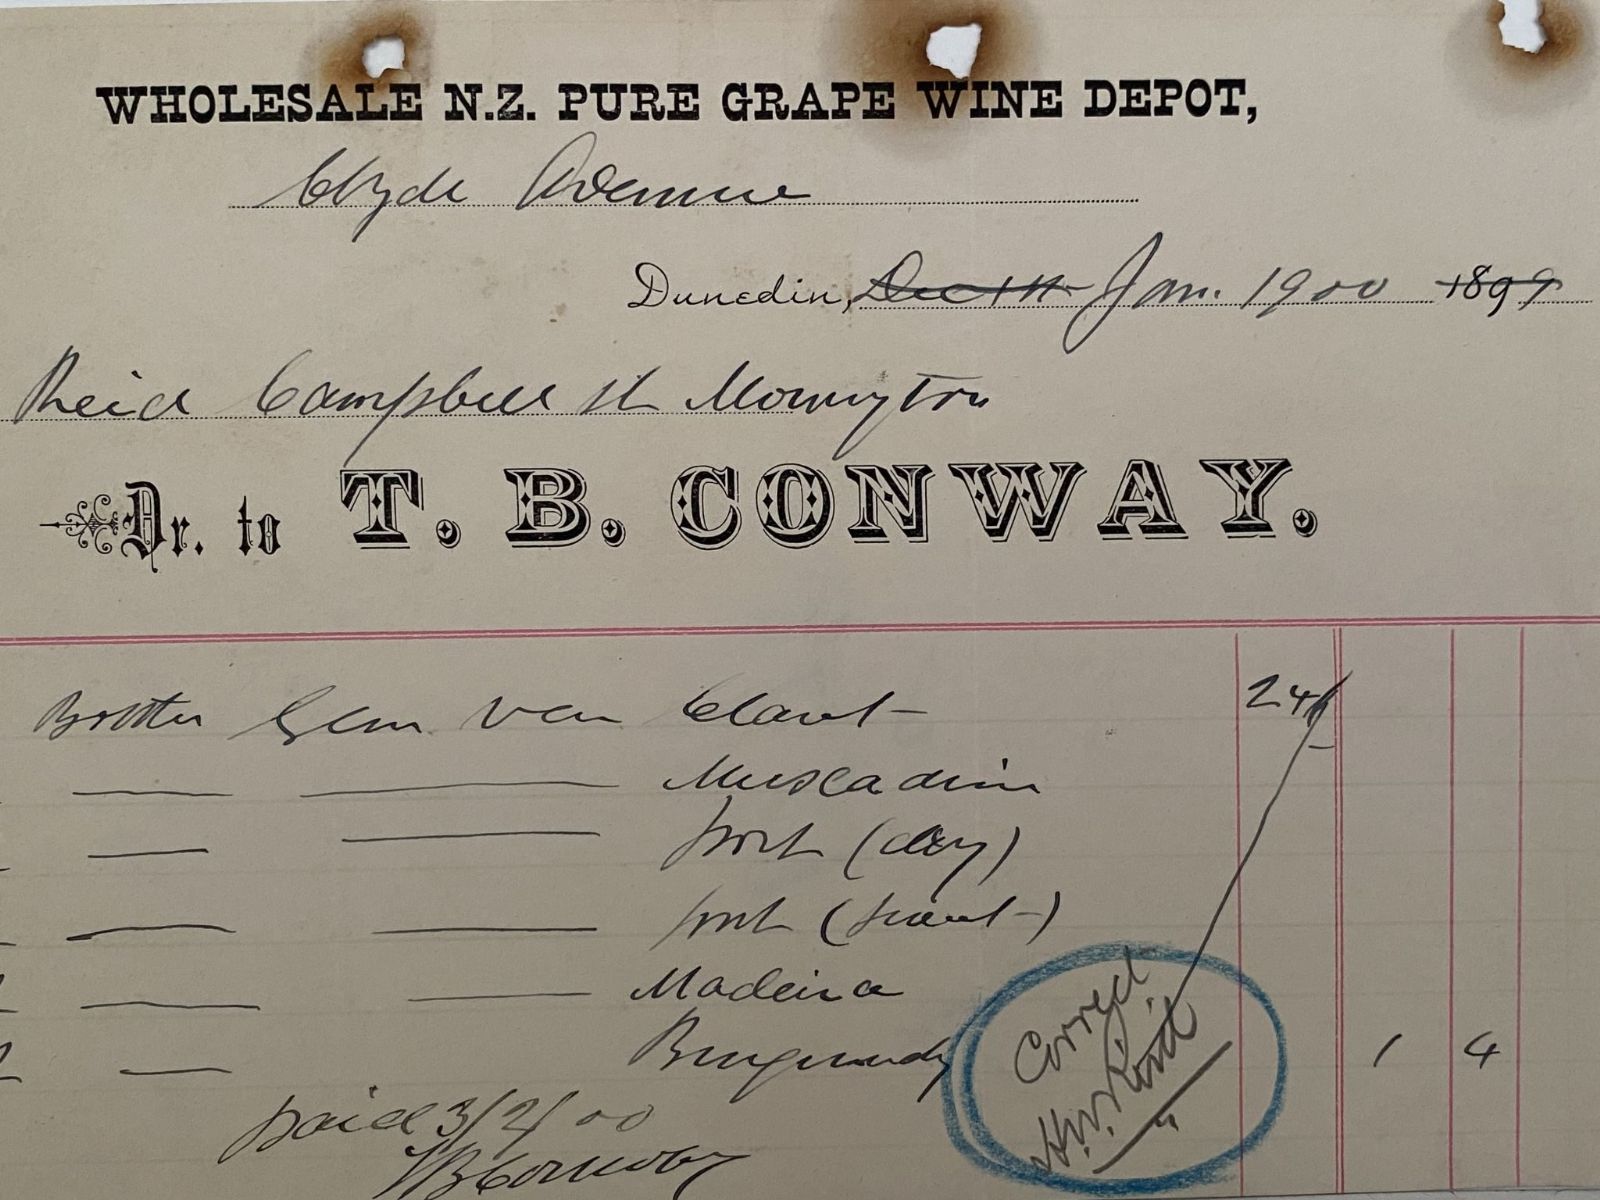 WHOLESALE N.Z. PURE GRAPE WINE DEPOT,
Clyde Avenue
Dunedin, Dec Jan. 1900 1899
Reid Campbell St Mornington
Dr. to T. B. CONWAY.
Claret 24/-
Muscadine
port (dry)
port (sweet)
Madeira
Burgundy 1 4
paid 3/2/00
TB Conway
Correct